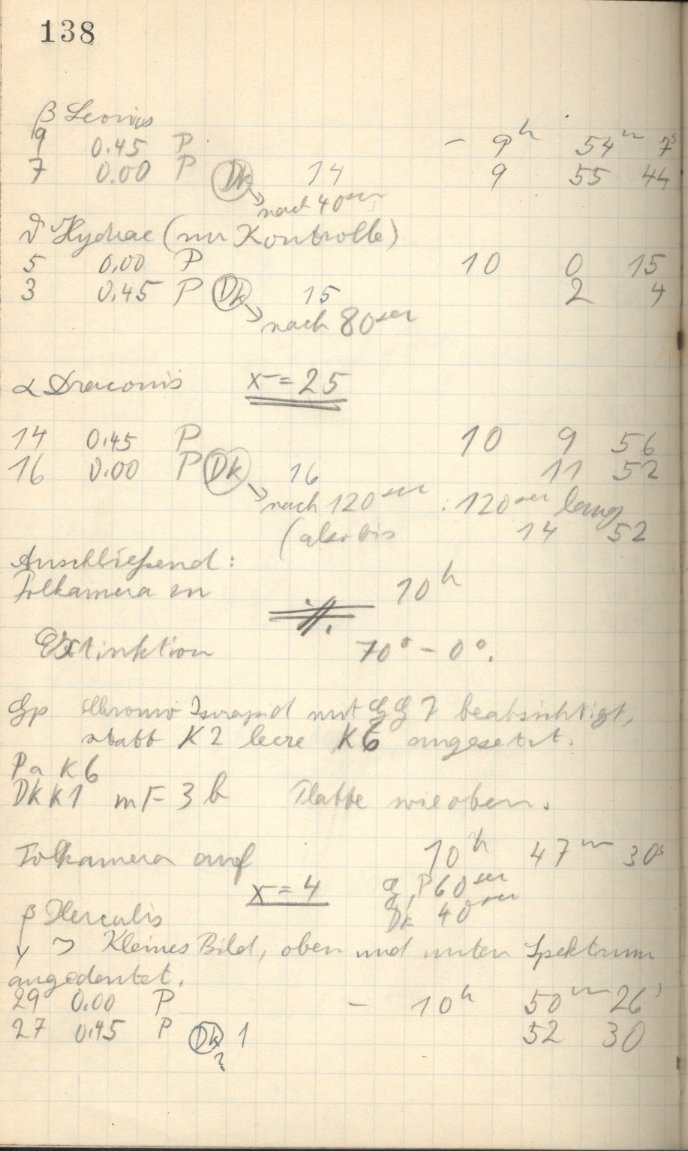 138
β Leonis
9 0.45 P – 9h 54m 7s
7 0.00 P Dk 14 9 55 44
nach 40sec
Hydrae (nur Kontrolle)
5 0.00 P 10 0 15
3 0.45 P Dk 15 2 4
nach 80sec
α Draconis x = 25
14 0.45 P 10 9 56
16 0.00 P Dk 16 11 52
nach 120sec 120sec lang
(also bis 14 52
Anschließend:
Polkamera 10h
Extinktion 70° – 0°.
Gp Chromo Isorapid mit GG7 beabsichtigt,
statt K2 leere K6 angesetzt.
Pa K6
DK K1 mF 3b Platte wie oben.
Polkamera auf 10h 47m 30s
x = 4 P 60sec
Dk 40sec
β Herculis
Kleines Bild, oben und unten Spektrum
angedeutet.
29 0.00 P – 10h 50m 26s
27 0.45 P Dk 1 52 30
2